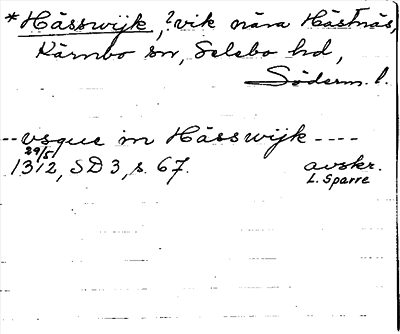 *Hässwijk, ?vik nära Hästnäs,
Kärnbo sn, Selebo hd,
Söderm. l.
-- vsque in Hässwijk ----
29/5
1312, SD 3, s. 67. avskr.
L. Sparre